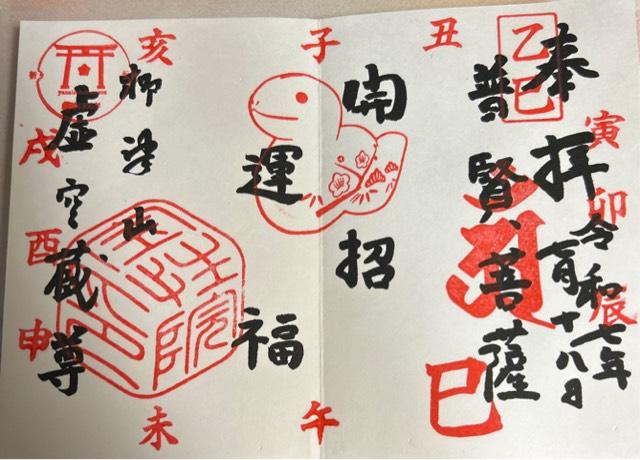 奉拝
乙巳
令和七年
一月十八日
普賢菩薩
開運招福
柳澤山
虚空蔵尊
子
丑
寅
卯
辰
巳
午
未
申
酉
戌
亥